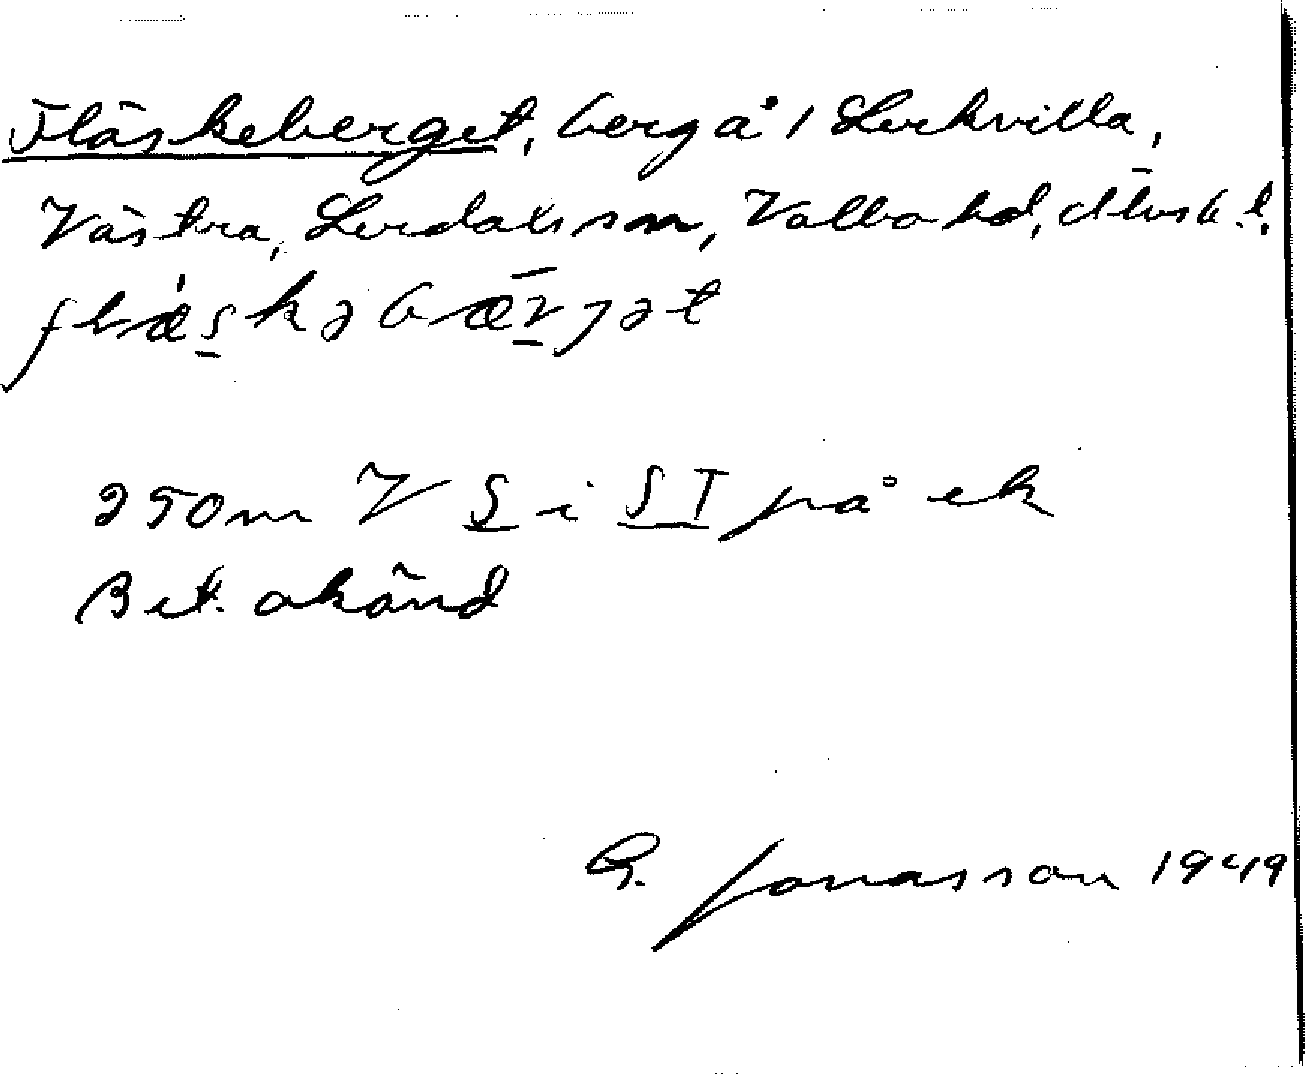 Fläskeberget, berg å 1 Lerkvilla,
Västra, Lerdals sn, Valbo hd, Älvsb. l.
flæskəbærjət
250m V S i ST på ek
Bet. okänd
G. Jonasson 1949